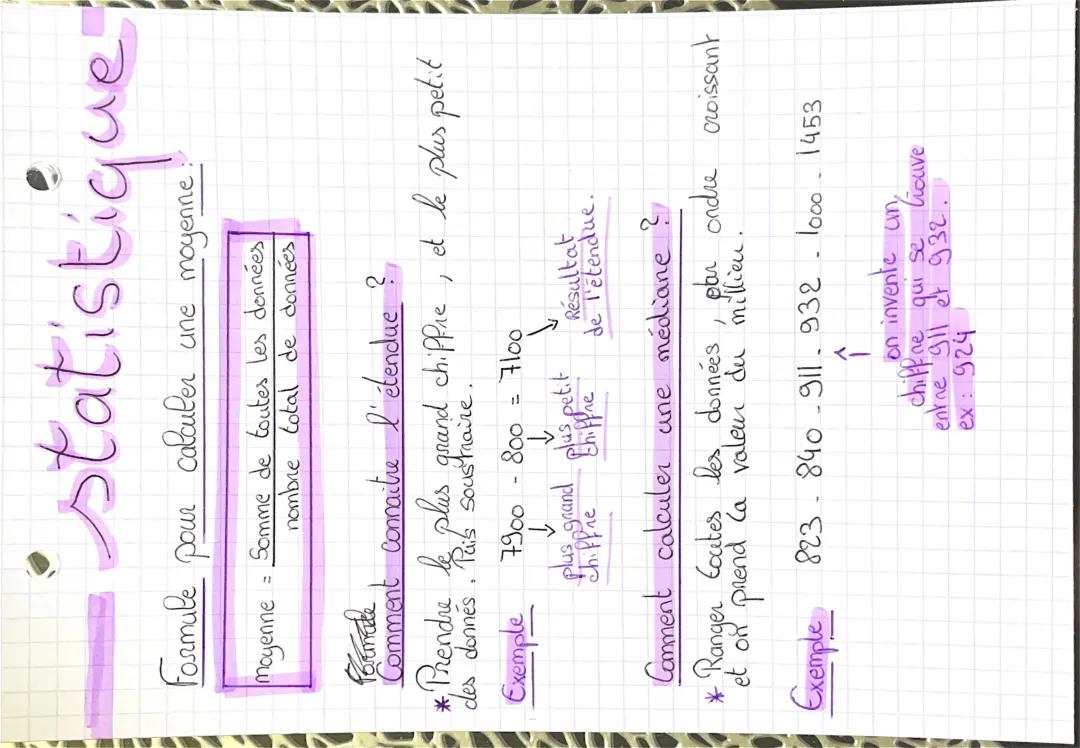 statistique
Formule pour calculer une moyenne:
moyenne = Somme de toutes les données
nombre total de données
Comment connaitre l'étendue ?
* Prendre le plus grand chiffre, et le plus petit
des donnés. Puis soustraire.
Exemple
7900 - 800 = 7100
plus grand chiffre
plus petit chiffre
Résultat de l'étendue.
Comment calculer une médiane ?
* Ranger toutes les données, par ordre croissant
et on prend la valeur du millieu.
Exemple
823 - 840 - 911 - 932 - 1000 - 1453
on invente un
chiffre qui se trouve
entre 911 et 932.
ex : 924